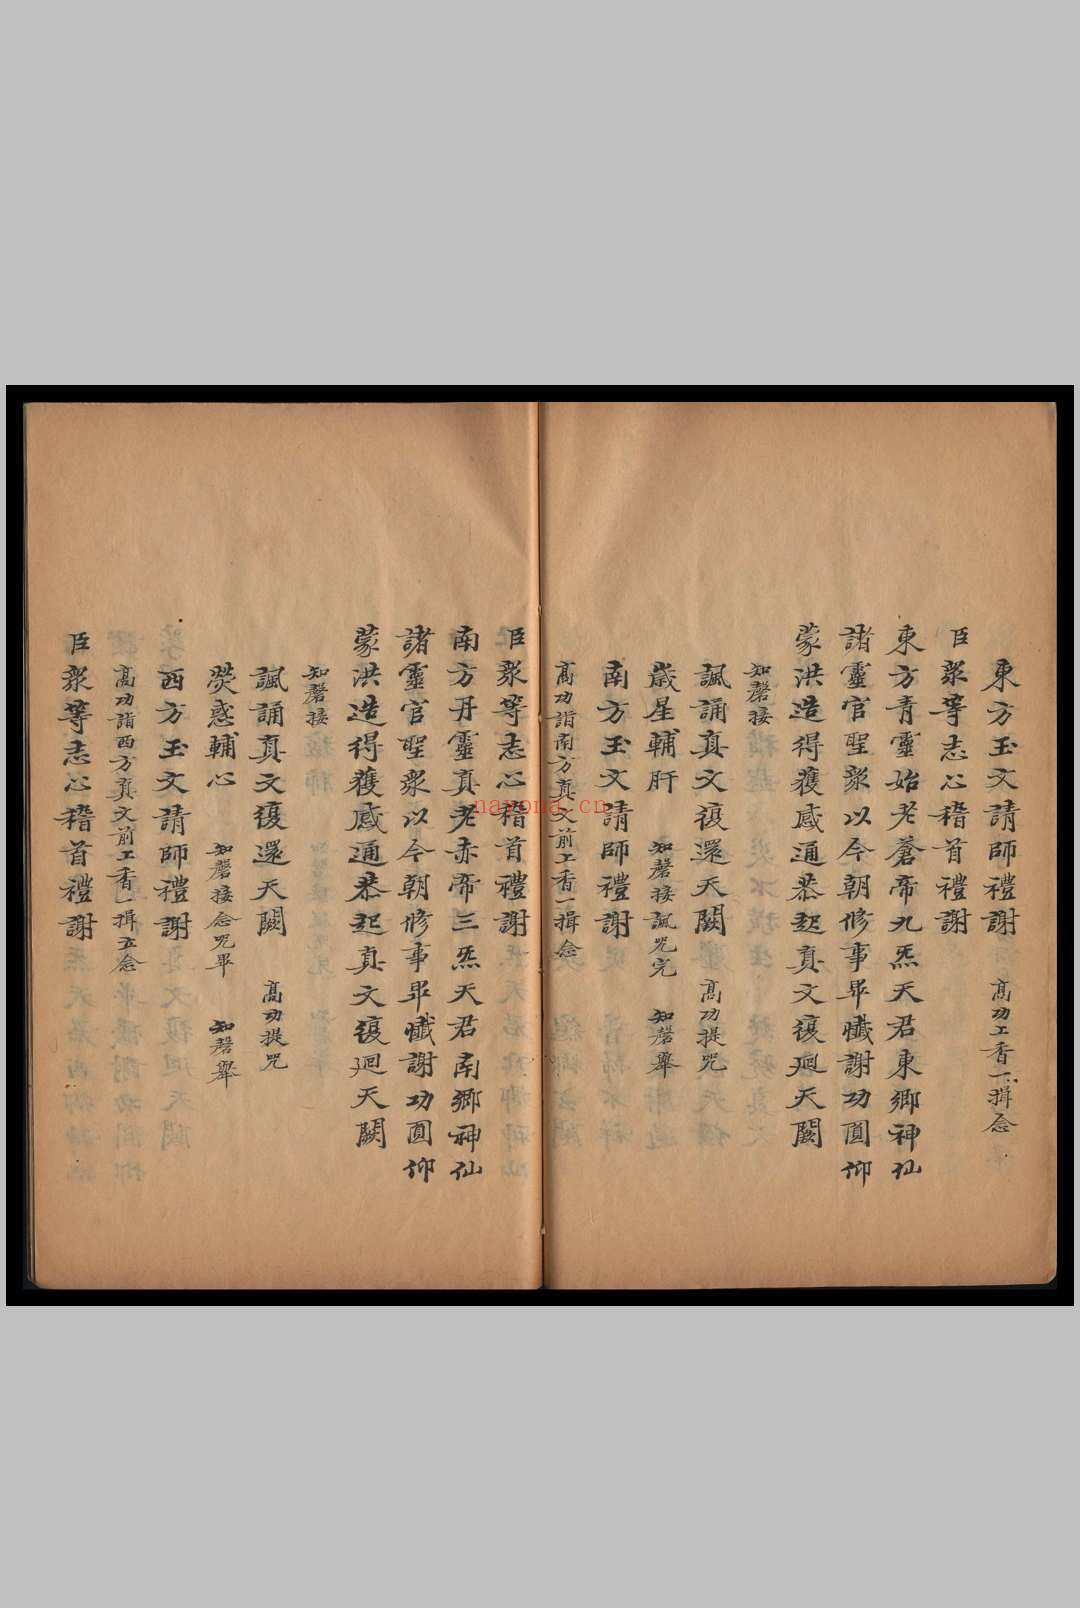 東方玉文請師禮謝 高功上香一揖念
臣衆等志心稽首禮謝
東方青靈始老蒼帝九炁天君東鄉神仙
諸靈官聖衆以今朝修事畢懺謝功圓仰
蒙洪造得獲感通恭起真文復廻天闕
知磬接
諷誦真文復還天闕 高功提咒
歲星輔肝 知磬接諷咒完 知磬舉
南方玉文請師禮謝
高功詣南方真文前上香一揖念
臣衆等志心稽首禮謝
南方丹靈真老赤帝三炁天君南鄉神仙
諸靈官聖衆以今朝修事畢懺謝功圓仰
蒙洪造得獲感通恭起真文復廻天闕
知磬接
諷誦真文復還天闕 高功提咒
熒惑輔心 知磬接念咒畢 知磬舉
西方玉文請師禮謝
高功詣西方真文前上香一揖立念
臣衆等志心稽首禮謝
nayona.cn